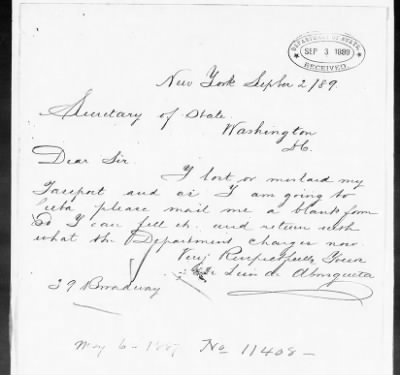 DEPARTMENT OF STATE
SEP 3 1889
RECEIVED
New York Septr 2/89
Secretary of State
Washington
DC.
Dear Sir
I lost or mislaid my
Passport and as I am going to
Cuba please mail me a blank form
So I can fill it. and return with
what the Department charges now.
Very Respectfully Yours
Luis de
39 Broadway
May 6 - 1887 No 11408 -